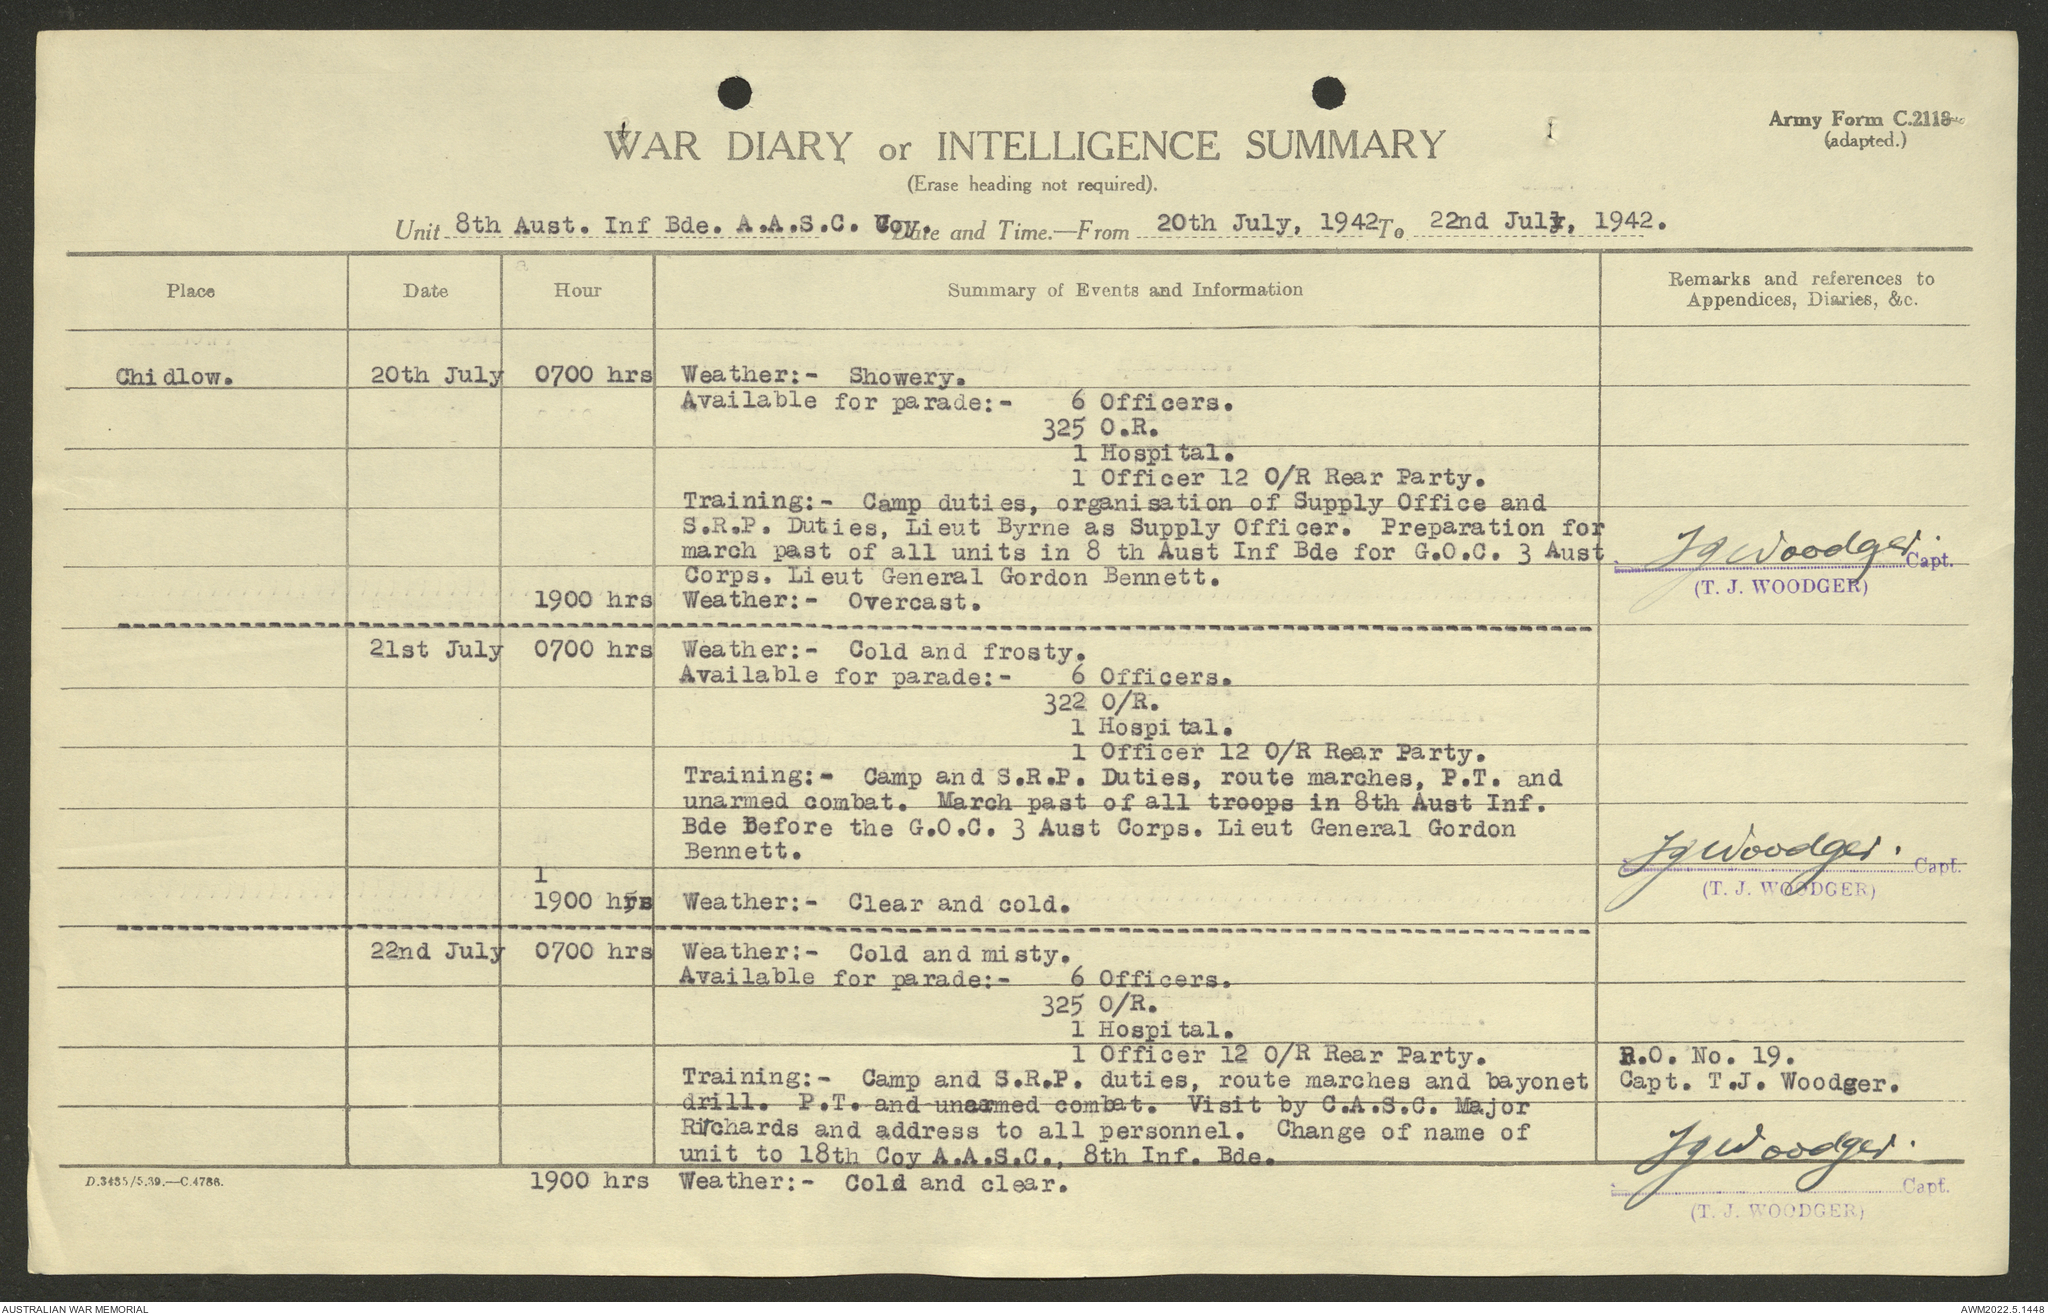 Army Form C.2118
(adapted.)
WAR DIARY or INTELLIGENCE SUMMARY
(Erase heading not required).
Unit 8th Aust. Inf Bde. A.A.S.C. Coy. Date and Time.—From 20th July, 1942 To 22nd July, 1942.
Place Date Hour Summary of Events and Information Remarks and references to
Appendices, Diaries, &c.
Chidlow. 20th July 0700 hrs Weather:- Showery.
Available for parade:- 6 Officers.
325 O.R.
1 Hospital.
1 Officer 12 O/R Rear Party.
Training:- Camp duties, organisation of Supply Office and
S.R.P. Duties, Lieut Byrne as Supply Officer. Preparation for
march past of all units in 8 th Aust Inf Bde for G.O.C. 3 Aust
Corps. Lieut General Gordon Bennett.
TJWoodger. Capt.
(T. J. WOODGER)
1900 hrs Weather:- Overcast.
21st July 0700 hrs Weather:- Cold and frosty.
Available for parade:- 6 Officers.
322 O/R.
1 Hospital.
1 Officer 12 O/R Rear Party.
Training:- Camp and S.R.P. Duties, route marches, P.T. and
unarmed combat. March past of all troops in 8th Aust Inf.
Bde before the G.O.C. 3 Aust Corps. Lieut General Gordon
Bennett.
TJWoodger. Capt.
(T. J. WOODGER)
1
1900 hrs Weather:- Clear and cold.
22nd July 0700 hrs Weather:- Cold and misty.
Available for parade:- 6 Officers.
325 O/R.
1 Hospital.
1 Officer 12 O/R Rear Party. R.O. No. 19.
Training:- Camp and S.R.P. duties, route marches and bayonet Capt. T.J. Woodger.
drill. P.T. and unarmed combat. Visit by C.A.S.C. Major
Richards and address to all personnel. Change of name of
unit to 18th Coy A.A.S.C., 8th Inf. Bde.
TJWoodger. Capt.
(T. J. WOODGER)
D.3485/5.39.—C.4786. 1900 hrs Weather:- Cold and clear.
AUSTRALIAN WAR MEMORIAL AWM2022.5.1448